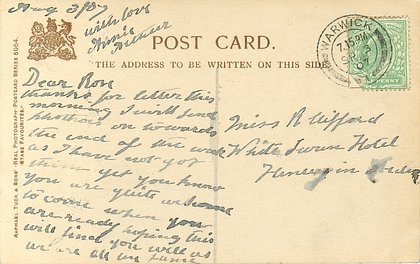 Aug 3/07
with love
POST CARD.
THE ADDRESS TO BE WRITTEN ON THIS SIDE
WARWICK
7.15 PM
RAPHAEL TUCK & SONS' "REAL PHOTOGRAPH" POSTCARD SERIES 5064.
STAGE FAVOURITES.
Dear Rose
thanks for letter this
morning I will send
photos on towards
the end of the week
as I have not got
them yet you know
you are quite welcome
to come when you
are ready hoping this
will find you well as
we are all the same
Miss R Clifford
White Swan Hotel
Henley in Arden